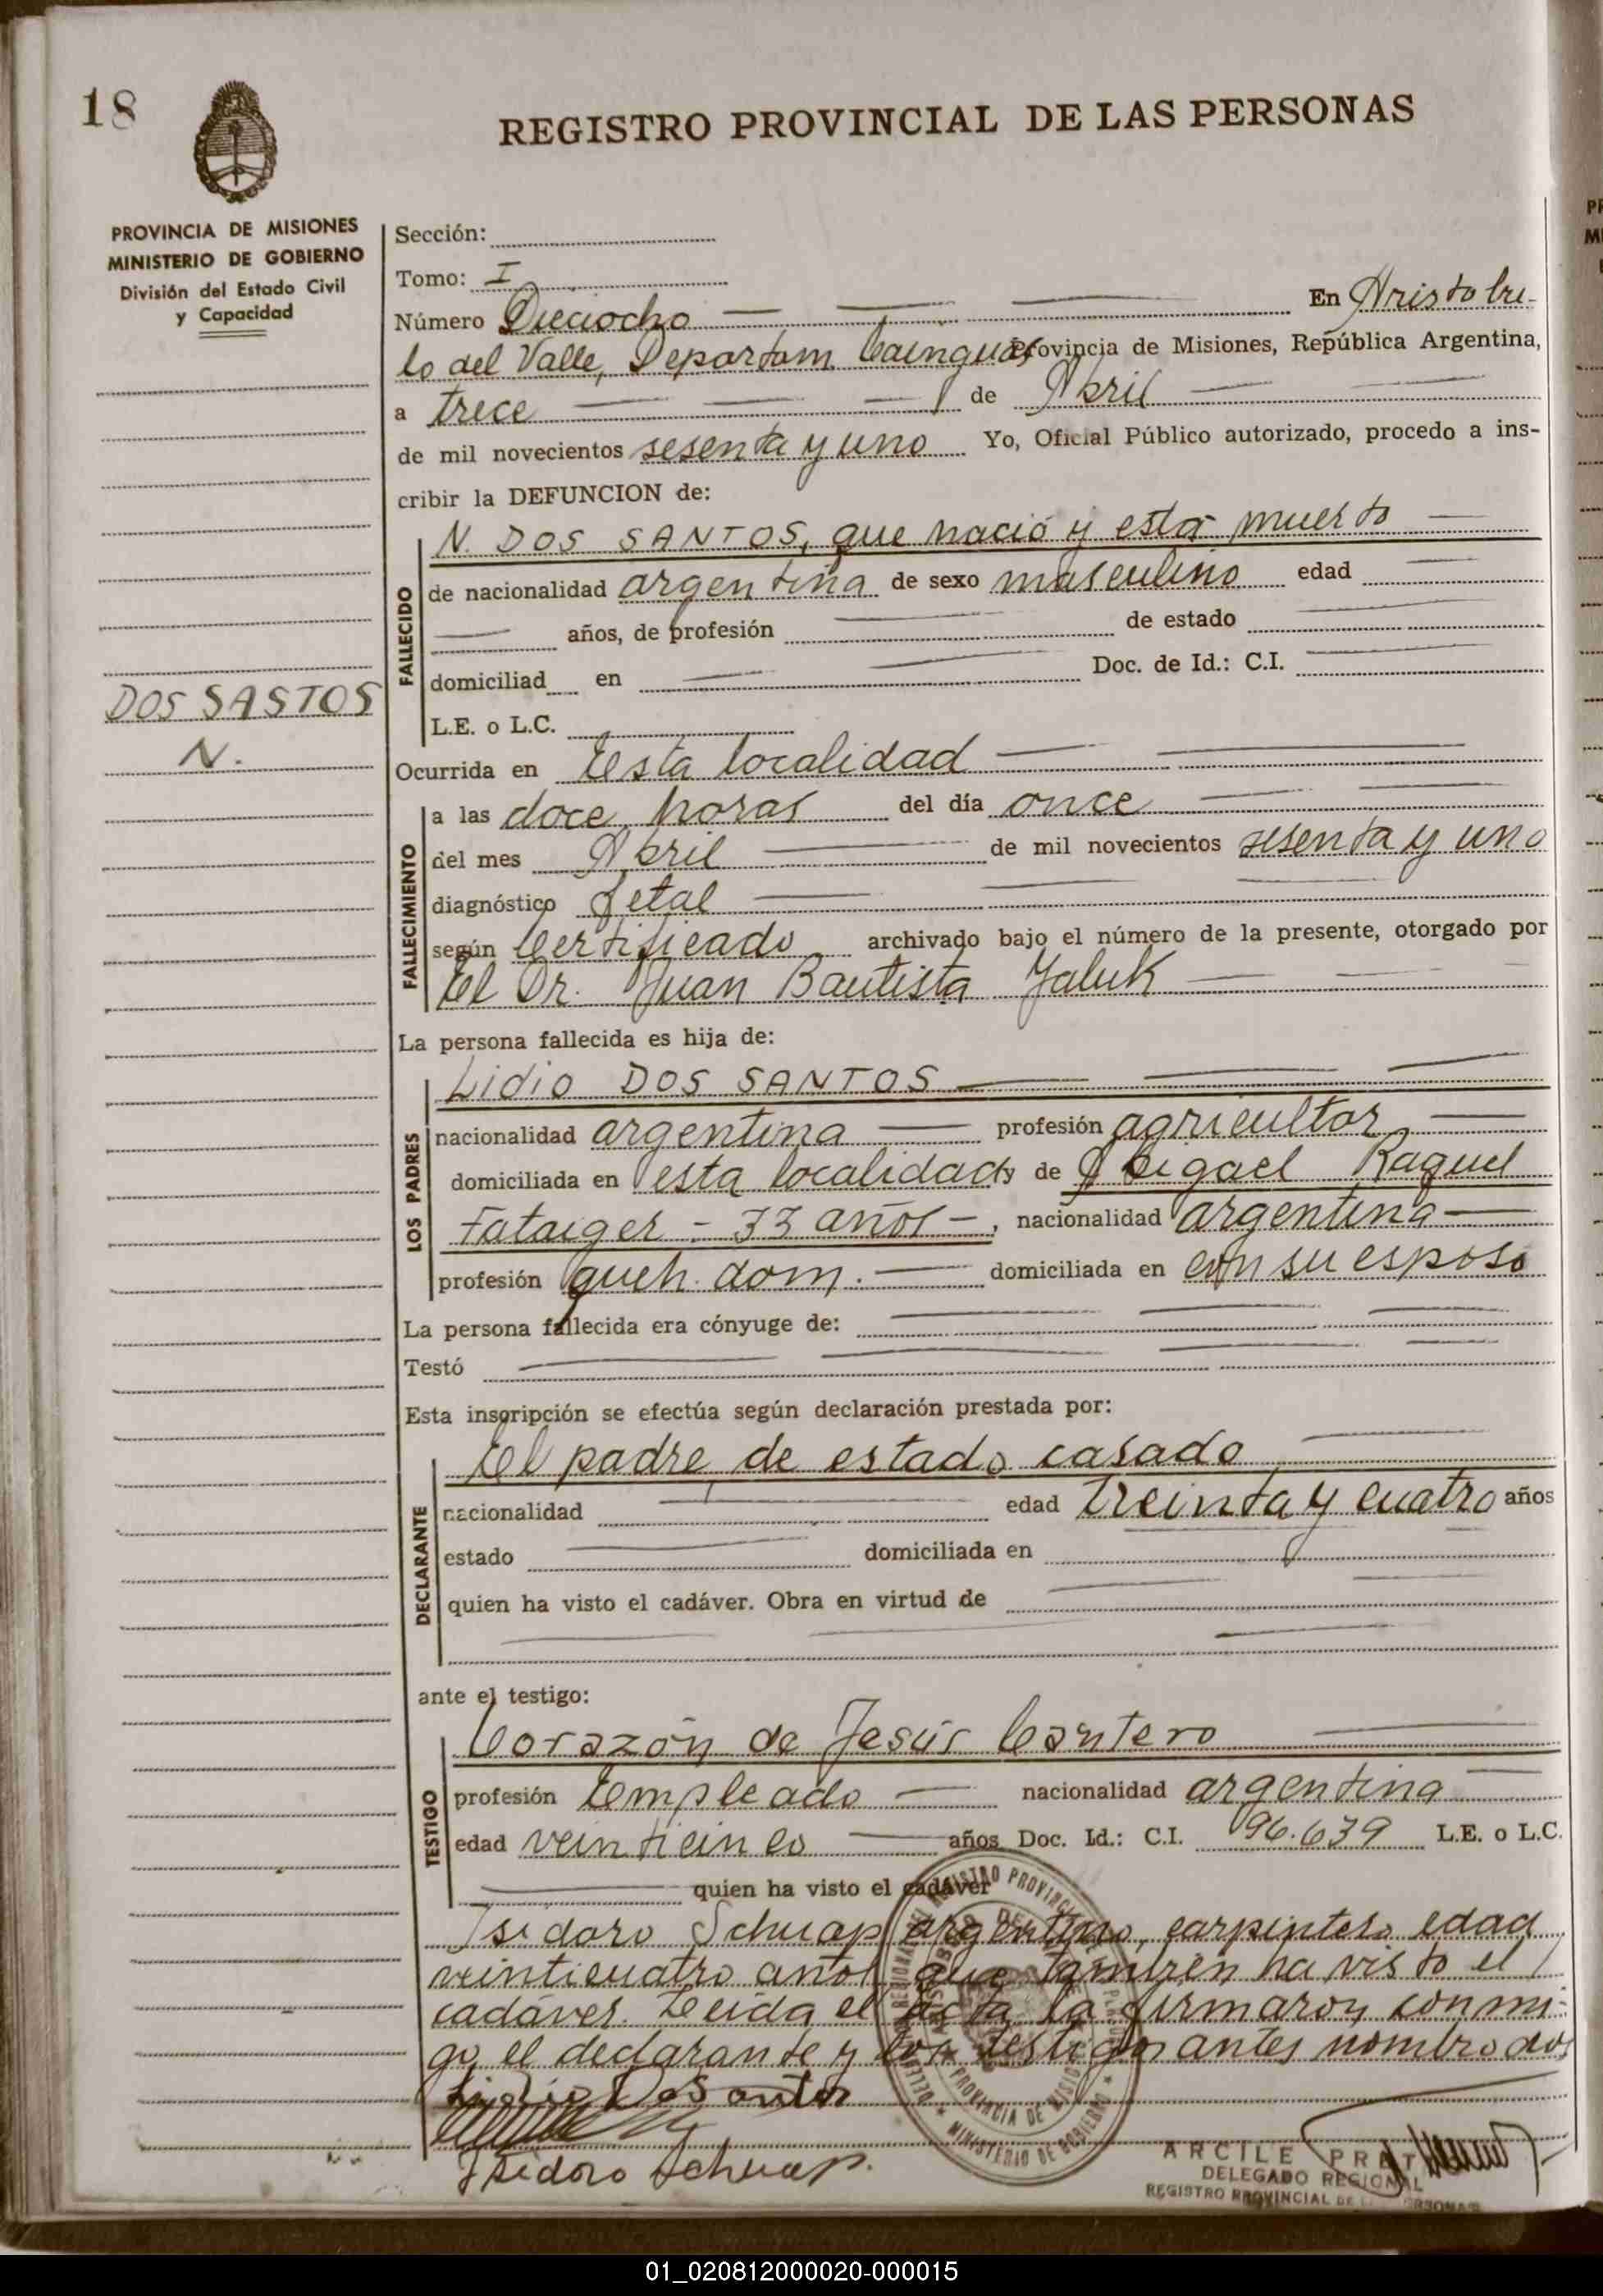 18
REGISTRO PROVINCIAL DE LAS PERSONAS
PROVINCIA DE MISIONES
MINISTERIO DE GOBIERNO
División del Estado Civil
y Capacidad
Sección:
Tomo: I
Número Dieciocho En Aristobu-
lo del Valle, Departam. Cainguás Provincia de Misiones, República Argentina,
a trece de Abril
de mil novecientos sesenta y uno Yo, Oficial Público autorizado, procedo a ins-
cribir la DEFUNCION de:
N. DOS SANTOS, que nació y está muerto
FALLECIDO
de nacionalidad argentina de sexo masculino edad
años, de profesión de estado
domiciliad en Doc. de Id.: C.I.
L.E. o L.C.
DOS SASTOS
N.
Ocurrida en Esta localidad
FALLECIMIENTO
a las doce horas del día once
del mes Abril de mil novecientos sesenta y uno
diagnóstico fetal
según Certificado archivado bajo el número de la presente, otorgado por
El Dr. Juan Bautista Jaluk
La persona fallecida es hija de:
LOS PADRES
Lidio DOS SANTOS
nacionalidad argentina profesión agricultor
domiciliada en esta localidad y de Abigael Raquel
Fataiger - 33 años -, nacionalidad argentina
profesión queh. dom. domiciliada en con su esposo
La persona fallecida era cónyuge de:
Testó
Esta inscripción se efectúa según declaración prestada por:
DECLARANTE
El padre de estado casado
nacionalidad edad treinta y cuatro años
estado domiciliada en
quien ha visto el cadáver. Obra en virtud de
ante el testigo:
TESTIGO
Corazón de Jesús Cantero
profesión Empleado nacionalidad argentina
edad veinticinco años Doc. Id.: C.I. 96.639 L.E. o L.C.
quien ha visto el cadáver
Isidoro Schuap argentino, carpintero edad
veinticuatro años que también ha visto el
cadáver. Leída el acta la firmaron conmi-
go el declarante y los testigos antes nombrados
Lidio Dos Santos
Isidoro Schuap.
MINISTERIO DE GOBIERNO
PROVINCIA DE MISIONES
ARCILE PRET
DELEGADO REGIONAL
REGISTRO PROVINCIAL DE LAS PERSONAS
01_020812000020-000015